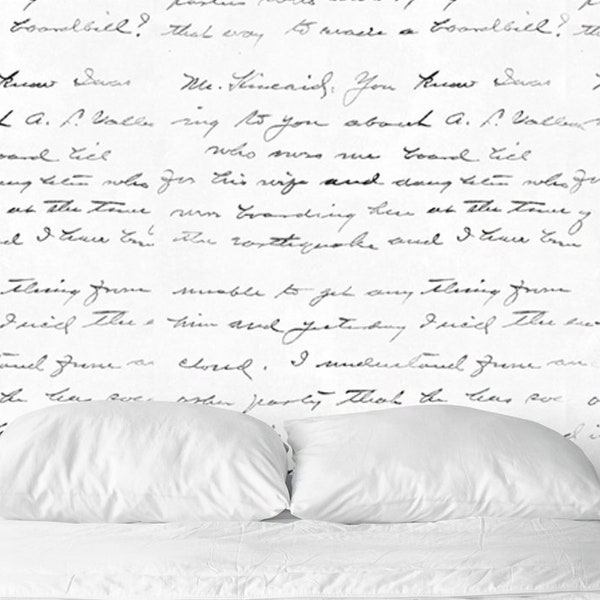 boardbill? that way to make a boardbill? that
know I was Mr. Kincaid, You know I was
A. L. ing to you about A. L.
board bill who owes me board bill
who for his wife and daughter who for
at the time were boarding here at the time of
d I have the earthquake and I have
thing from unable to get any thing from
the him and yesterday I the
from an closed. I understand from an
he has other party that he has